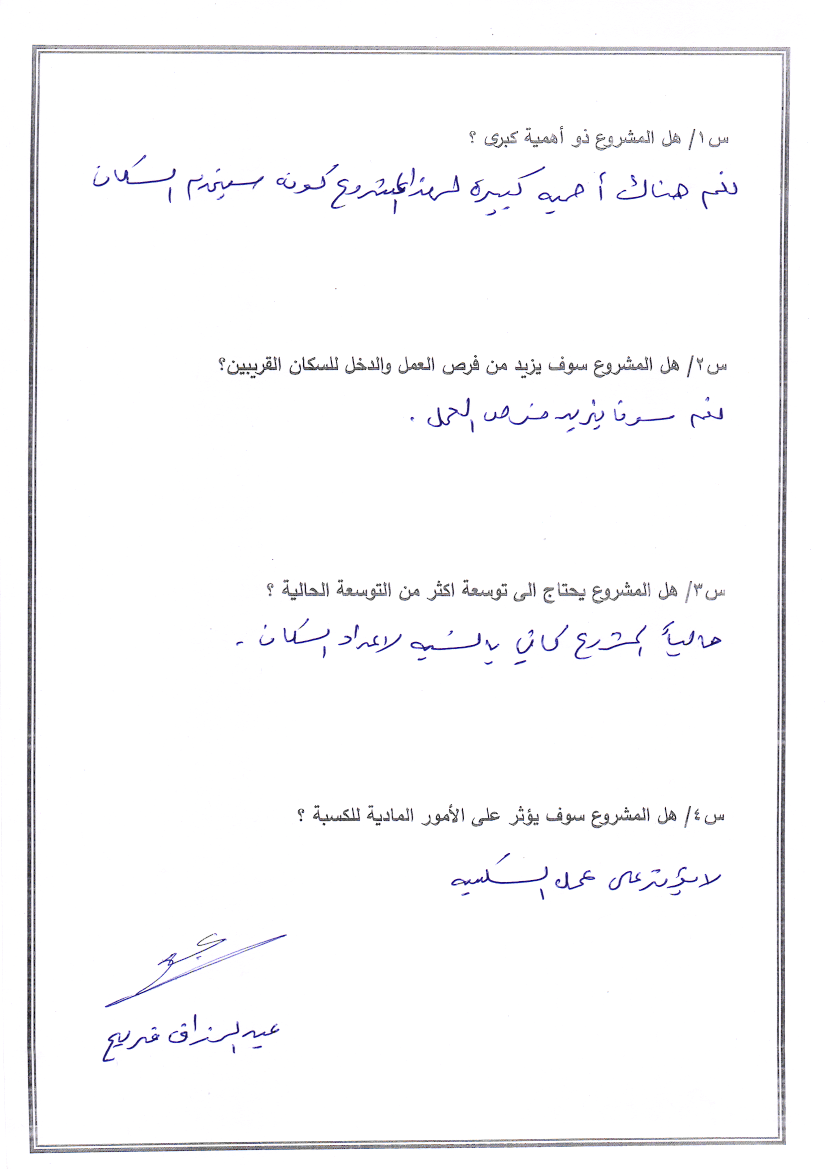 س١/ هل المشروع ذو أهمية كبرى ؟
نعم هناك أهميه كبيرة لهذا المشروع كونه سيخدم السكان
س٢/ هل المشروع سوف يزيد من فرص العمل والدخل للسكان القريبين؟
نعم سوف يزيد فرص العمل .
س٣/ هل المشروع يحتاج الى توسعة اكثر من التوسعة الحالية ؟
حالياً المشروع كافي بالنسبه لاعداد السكان .
س٤/ هل المشروع سوف يؤثر على الأمور المادية للكسبة ؟
لا يؤثر على عمل الكسبه
عبد الرزاق فريح